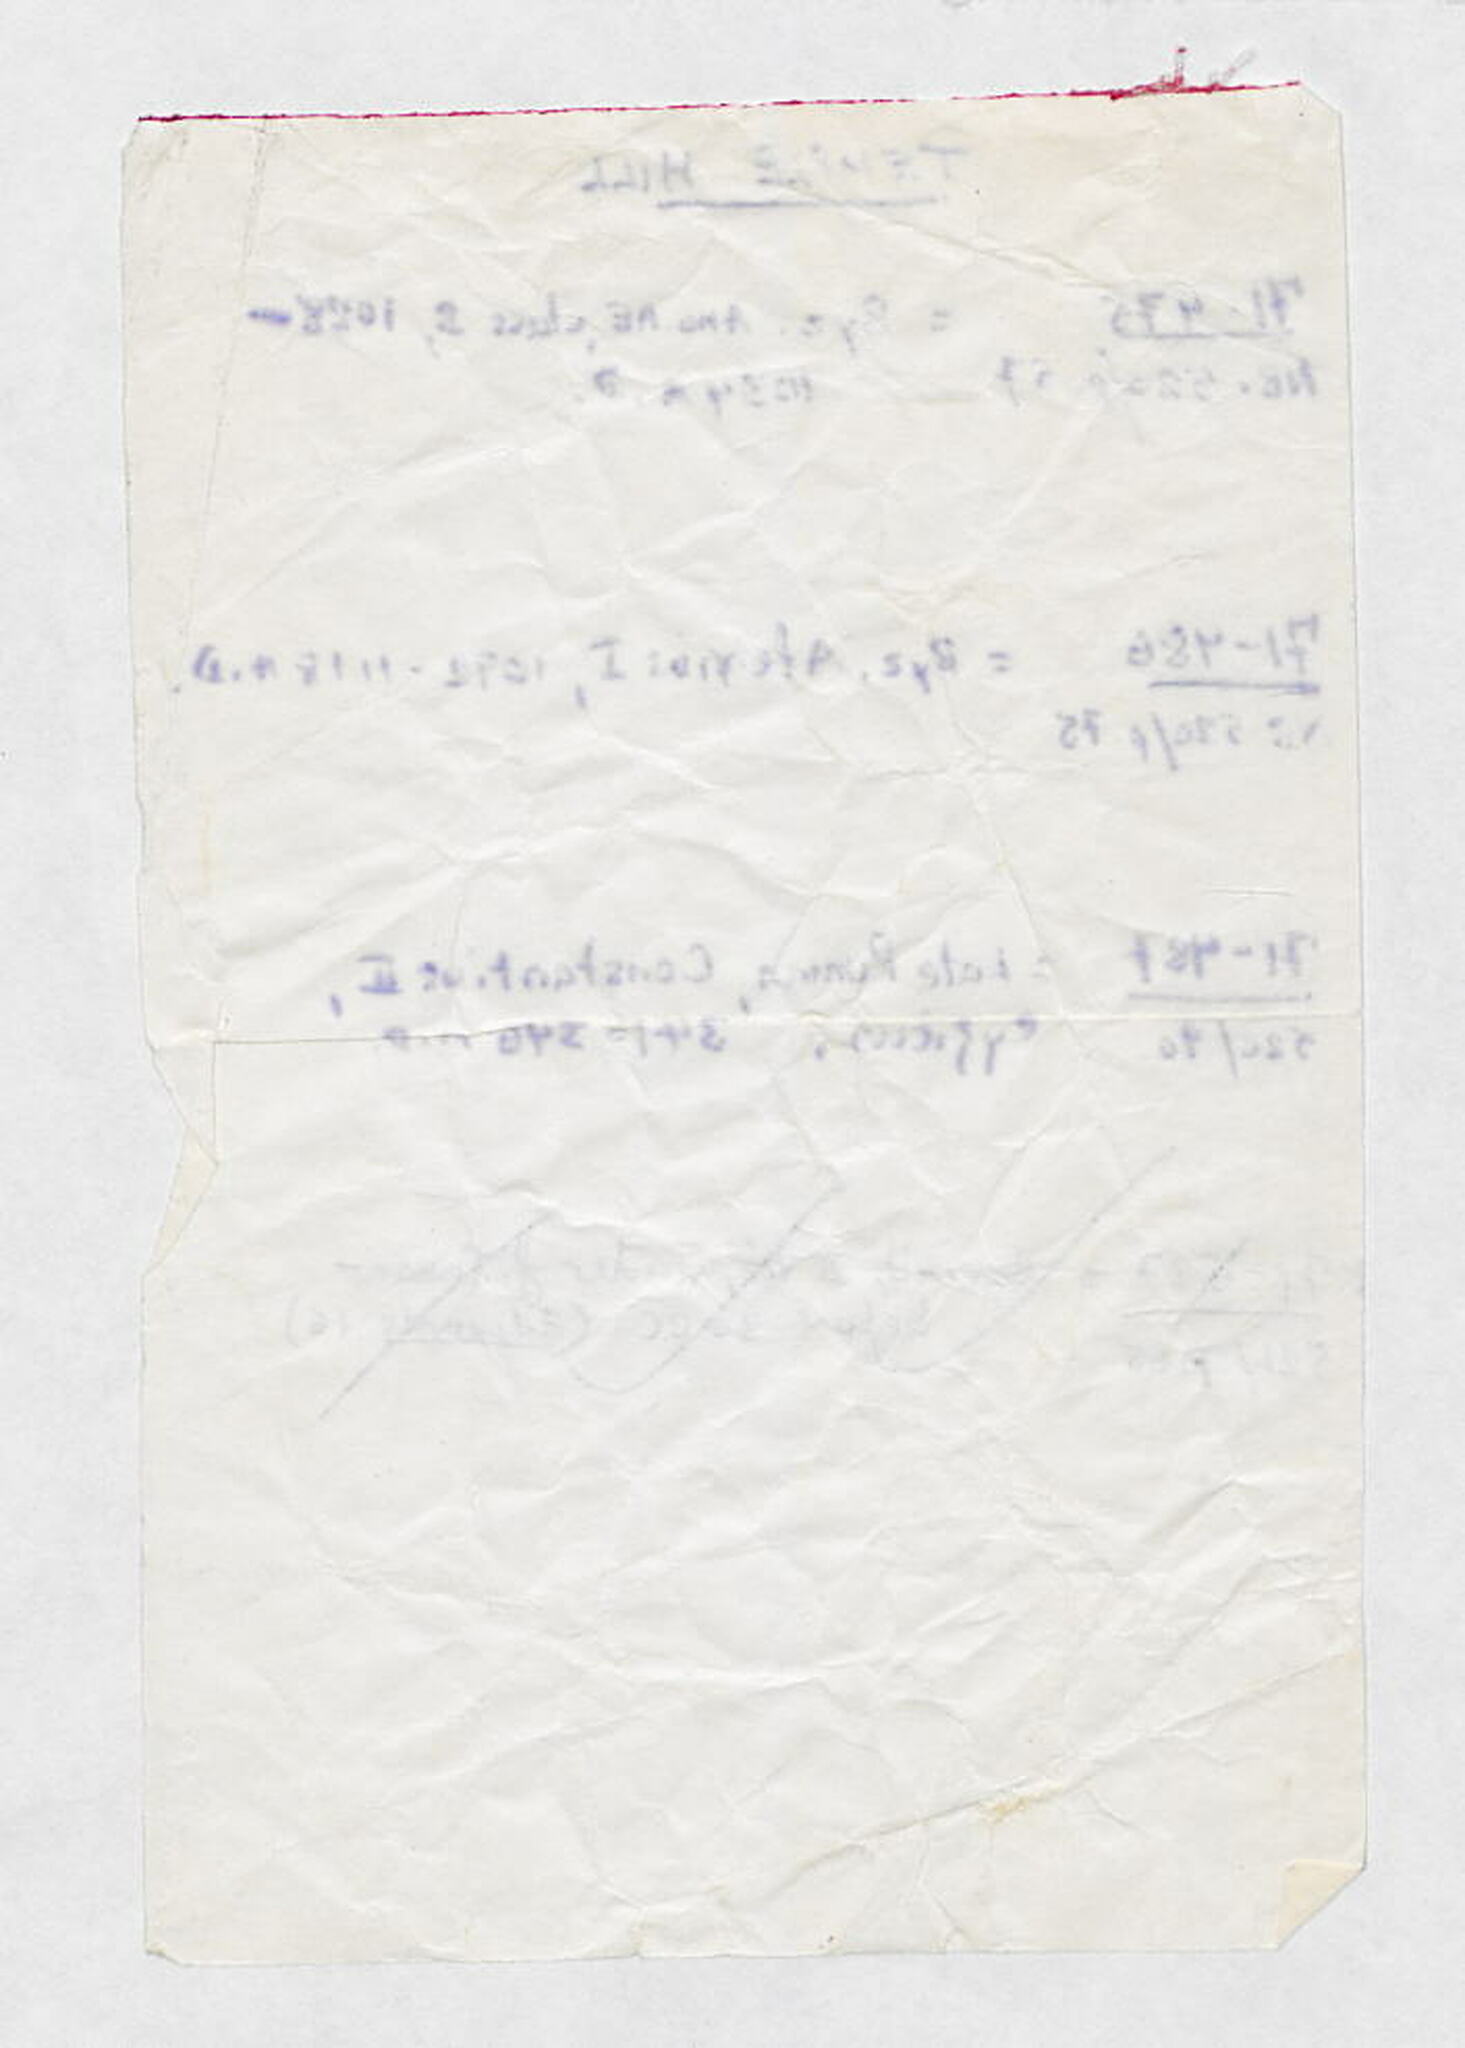 TEMPLE HILL
71-475 = Byz. Anon AE, class B, 1028-
NB. 520/p 57 1034 A.D.
71-486 = Byz. Alexius I, 1092-1118 A.D.
NB 520/p 75
71-487 = Late Roman, Constantius II,
520/90 Cyzicus, 341-346 A.D.